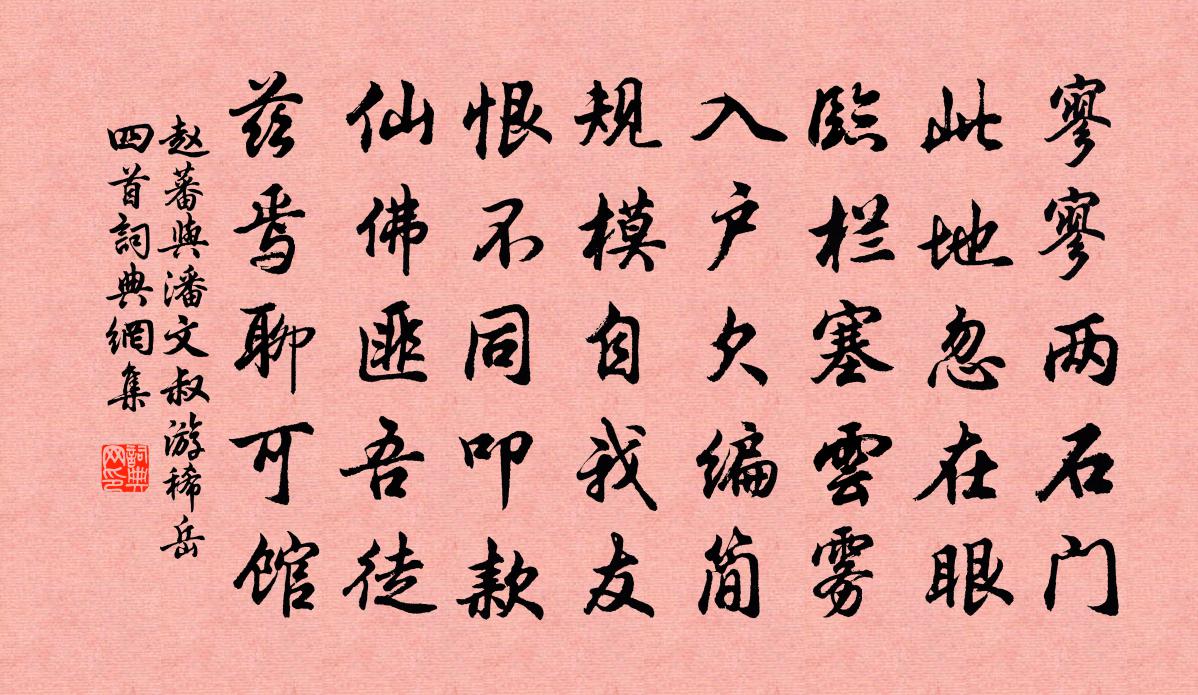 寥寥两石门
此地忽在眼
臨栏塞雲雾
入户欠编简
规模自我友
恨不同叩款
仙佛匪吾徒
兹焉聊可馆
赵蕃與潘文叔游稀岳
四首詞典網集
詞典
网印